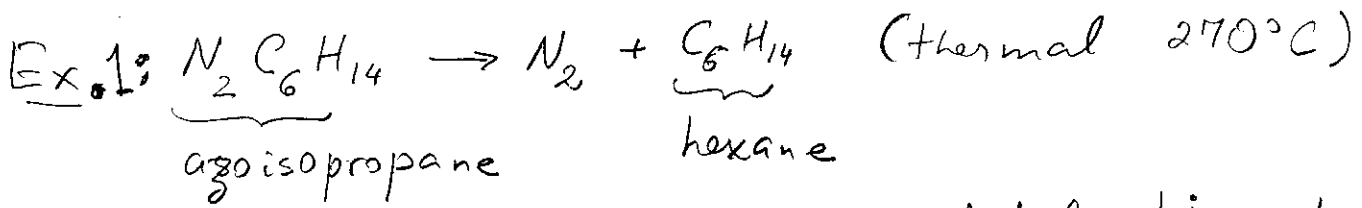 Ex.1: N₂C₆H₁₄ → N₂ + C₆H₁₄ (thermal 270°C)
azoisopropane hexane